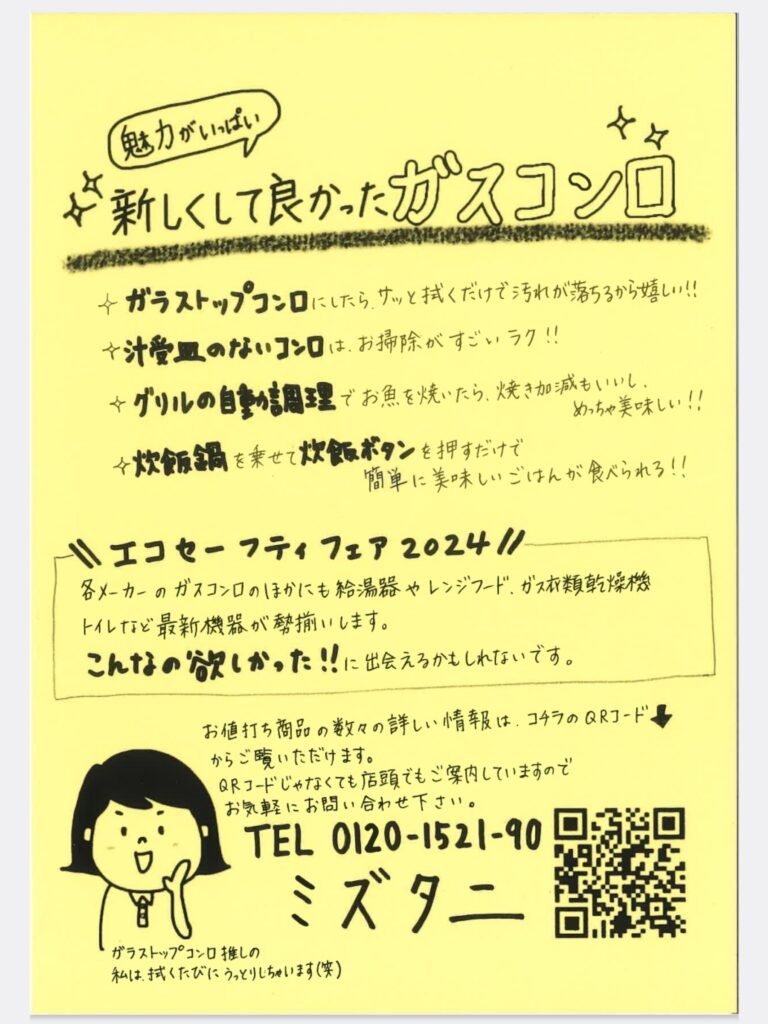 魅力がいっぱい
新しくして良かったガスコンロ
ガラストップコンロにしたら、サッと拭くだけで汚れが落ちるから嬉しい!!
汁受皿のないコンロは、お掃除がすごいラク!!
グリルの自動調理でお魚を焼いたら、焼き加減もいいし、
めっちゃ美味しい!!
炊飯鍋を乗せて炊飯ボタンを押すだけで
簡単に美味しいごはんが食べられる!!
\\ エコセーフティフェア2024 //
各メーカーのガスコンロのほかにも給湯器やレンジフード、ガス衣類乾燥機
トイレなど最新機器が勢揃いします。
こんなの欲しかった!!に出会えるかもしれないです。
お値打ち商品の数々の詳しい情報は、コチラのQRコード↓
からご覧いただけます。
QRコードじゃなくても店頭でもご案内していますので
お気軽にお問い合わせ下さい。
TEL 0120-1521-90
ミズタニ
ガラストップコンロ推しの
私は、拭くたびにうっとりしちゃいます(笑)